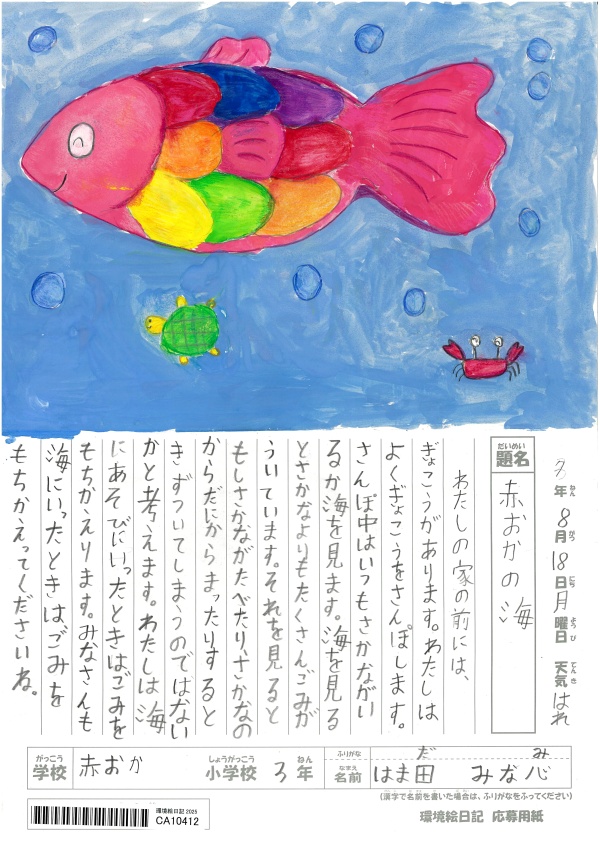 7年8月18日月曜日 天気はれ
題名 赤おかの海
わたしの家の前には、
ぎょこうがあります。わたしは
よくぎょこうをさんぽします。
さんぽ中はいつもさかながい
るか海を見ます。海を見る
とさかなよりもたくさんごみが
ういています。それを見ると
もしさかながたべたり、さかなの
からだにからまったりすると
きずついてしまうのではない
かと考えます。わたしは海
にあそびにいったときはごみを
もちかえります。みなさんも
海にいったときはごみを
もちかえってくださいね。
がっこう 学校 赤おか しょうがっこう 小学校 3 ねん 年 ふりがな なまえ 名前 はま田 だ みな心 み
(漢字で名前を書いた場合は、ふりがなをふってください)
環境絵日記 応募用紙
環境絵日記 2025
CA10412